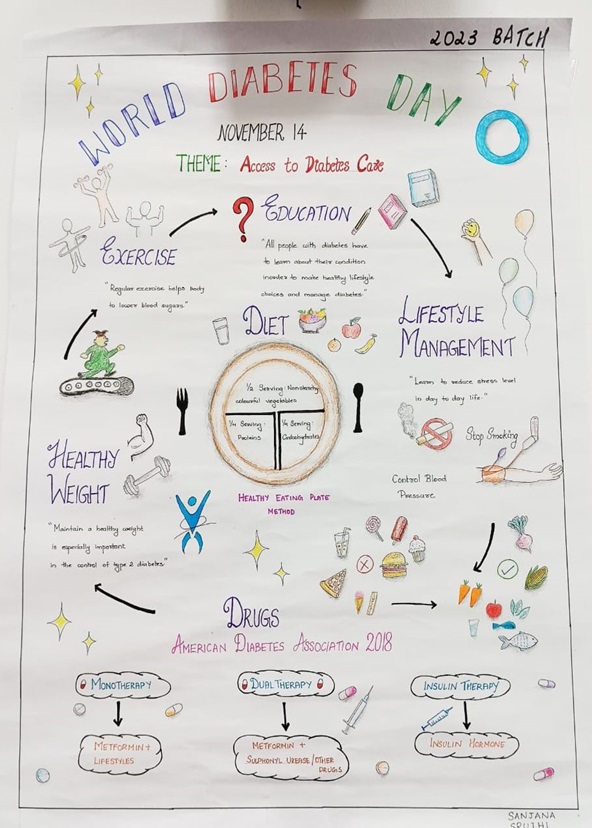 2023 BATCH
WORLD DIABETES DAY
NOVEMBER 14
THEME: Access to Diabetes Care
? EDUCATION
"All people with diabetes have
to learn about their condition
inorder to make healthy lifestyle
choices and manage diabetes"
EXERCISE
"Regular exercise helps body
to lower blood sugars."
LIFESTYLE
MANAGEMENT
"Learn to reduce stress level
in day to day life."
Stop Smoking
Control Blood
Pressure
DIET
1/2 Serving Nonstarchy
colourful vegetables
1/4 Serving:
Proteins
1/4 Serving:
Carbohydrates
HEALTHY EATING PLATE
METHOD
HEALTHY
WEIGHT
"Maintain a healthy weight
is especially important
in the control of type 2 diabetes."
DRUGS
AMERICAN DIABETES ASSOCIATION 2018
MONOTHERAPY
METFORMIN +
LIFESTYLES
DUAL THERAPY
METFORMIN +
SULPHONYL UREASE/OTHER
DRUGS
INSULIN THERAPY
INSULIN HORMONE
SANJANA
SRUTHI